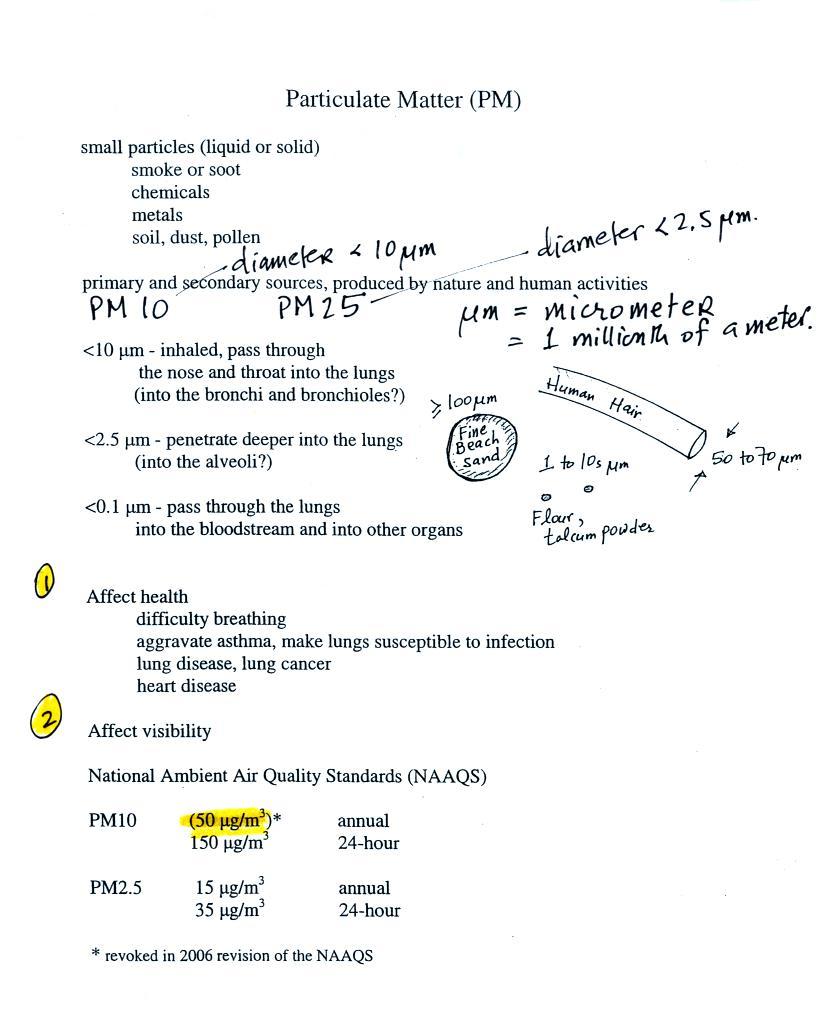 Particulate Matter (PM)
small particles (liquid or solid)
smoke or soot
chemicals
metals
soil, dust, pollen
diameter < 10 µm
diameter < 2.5 µm.
primary and secondary sources, produced by nature and human activities
PM 10
PM 25
µm = micrometer
= 1 millionth of a meter.
<10 µm - inhaled, pass through
the nose and throat into the lungs
(into the bronchi and bronchioles?)
≥ 100 µm
Fine
Beach
sand
Human Hair
50 to 70 µm
<2.5 µm - penetrate deeper into the lungs
(into the alveoli?)
1 to 10s µm
Flour,
talcum powder
<0.1 µm - pass through the lungs
into the bloodstream and into other organs
1
Affect health
difficulty breathing
aggravate asthma, make lungs susceptible to infection
lung disease, lung cancer
heart disease
2
Affect visibility
National Ambient Air Quality Standards (NAAQS)
PM10 (50 µg/m³)* annual
150 µg/m³ 24-hour
PM2.5 15 µg/m³ annual
35 µg/m³ 24-hour
* revoked in 2006 revision of the NAAQS